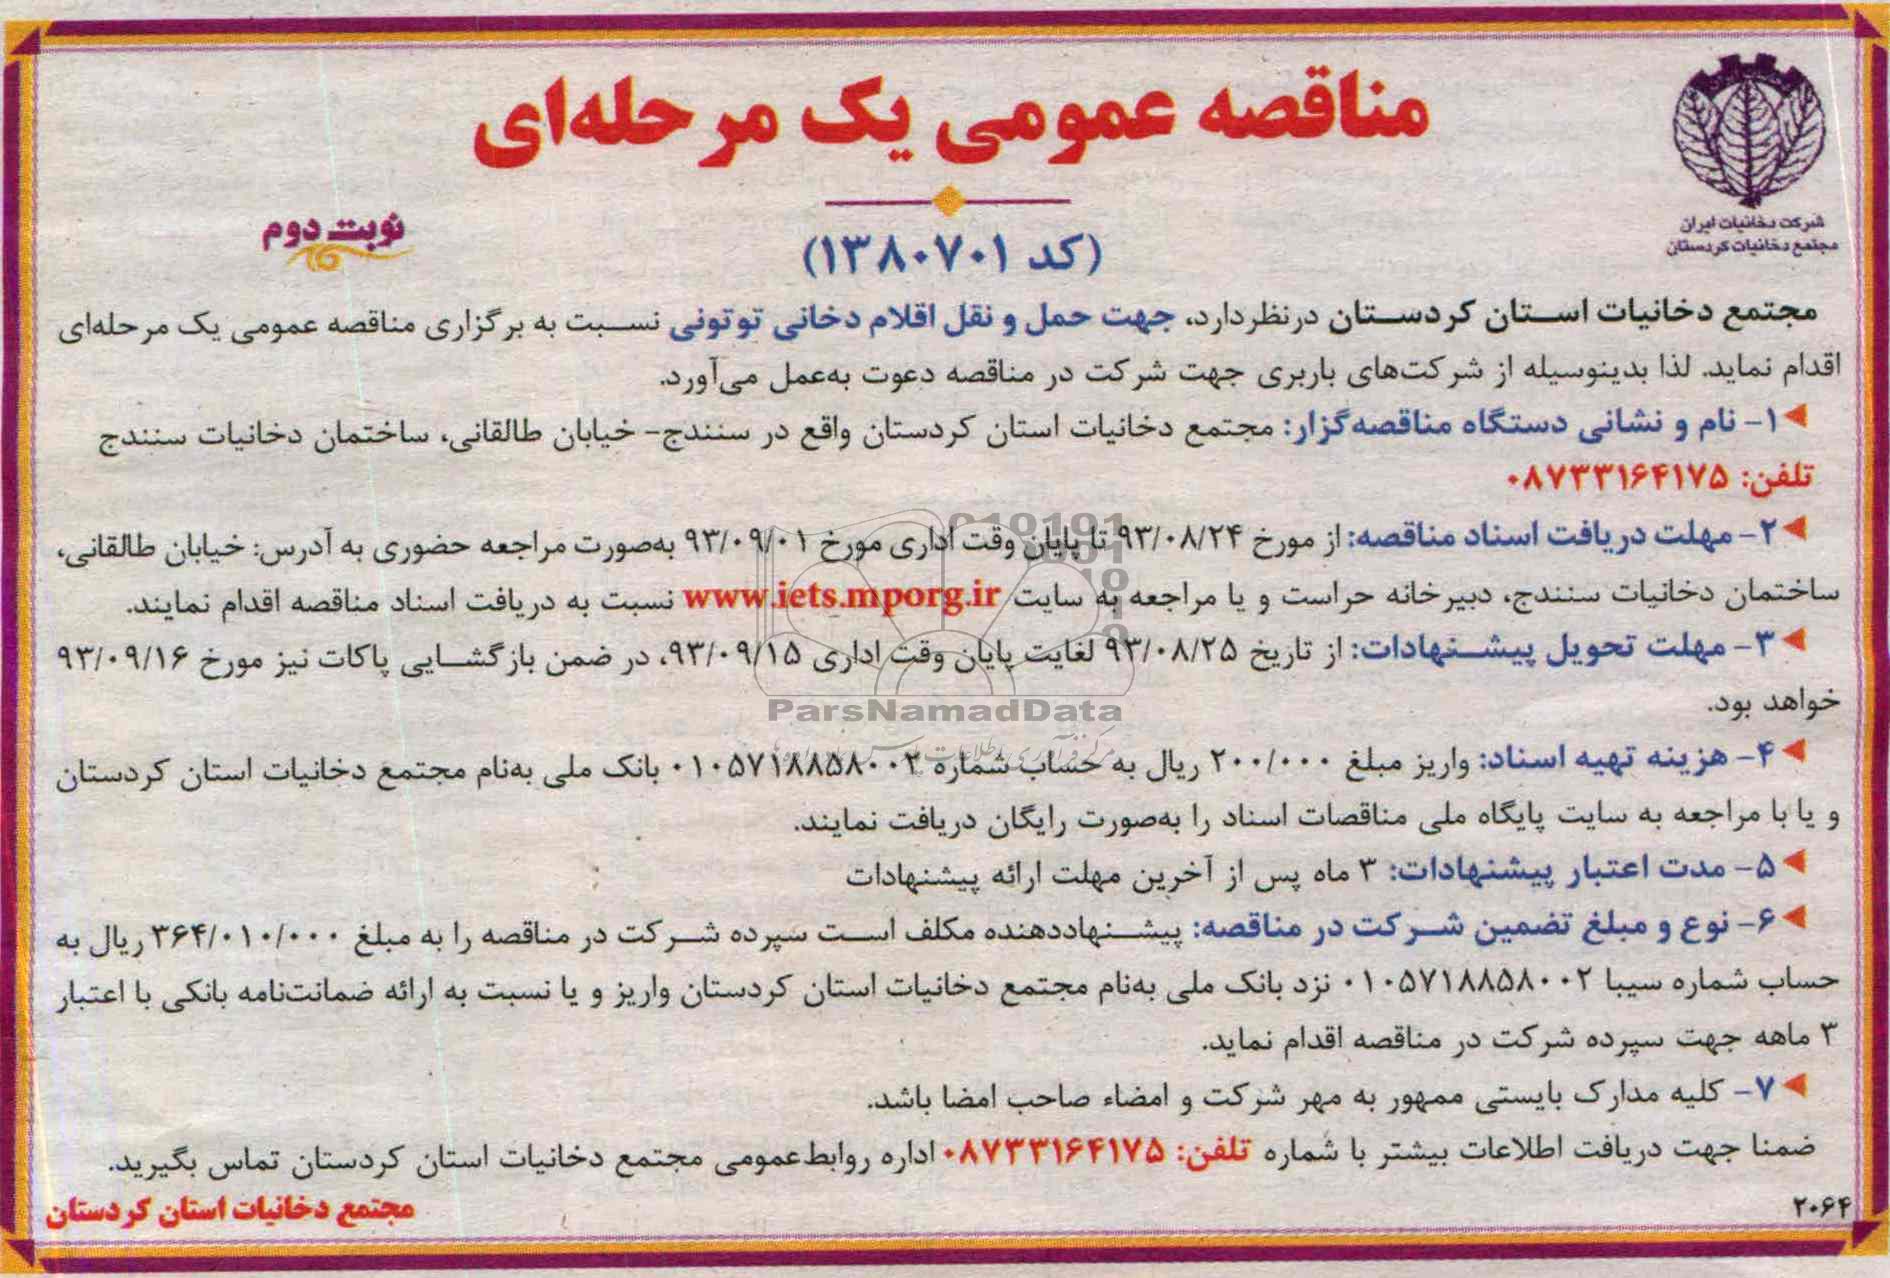 مناقصه عمومی یک مرحله‌ای
شرکت دخانیات ایران
مجتمع دخانیات کردستان
نوبت دوم
(کد ۱۳۸۰۷۰۱)
مجتمع دخانیات استان کردستان درنظردارد، جهت حمل و نقل اقلام دخانی توتونی نسبت به برگزاری مناقصه عمومی یک مرحله‌ای
اقدام نماید. لذا بدینوسیله از شرکت‌های باربری جهت شرکت در مناقصه دعوت به‌عمل می‌آورد.
۱- نام و نشانی دستگاه مناقصه‌گزار: مجتمع دخانیات استان کردستان واقع در سنندج- خیابان طالقانی، ساختمان دخانیات سنندج
تلفن: ۰۸۷۳۳۱۶۴۱۷۵
۲- مهلت دریافت اسناد مناقصه: از مورخ ۹۳/۰۸/۲۴ تا پایان وقت اداری مورخ ۹۳/۰۹/۰۱ به‌صورت مراجعه حضوری به آدرس: خیابان طالقانی،
ساختمان دخانیات سنندج، دبیرخانه حراست و یا مراجعه به سایت www.iets.mporg.ir نسبت به دریافت اسناد مناقصه اقدام نمایند.
۳- مهلت تحویل پیشنهادات: از تاریخ ۹۳/۰۸/۲۵ لغایت پایان وقت اداری ۹۳/۰۹/۱۵، در ضمن بازگشایی پاکات نیز مورخ ۹۳/۰۹/۱۶
خواهد بود.
ParsNamadData
۴- هزینه تهیه اسناد: واریز مبلغ ۲۰۰/۰۰۰ ریال به حساب شماره ۰۱۰۵۷۱۸۸۵۸۰۰۲ بانک ملی به‌نام مجتمع دخانیات استان کردستان
و یا با مراجعه به سایت پایگاه ملی مناقصات اسناد را به‌صورت رایگان دریافت نمایند.
۵- مدت اعتبار پیشنهادات: ۳ ماه پس از آخرین مهلت ارائه پیشنهادات
۶- نوع و مبلغ تضمین شرکت در مناقصه: پیشنهاددهنده مکلف است سپرده شرکت در مناقصه را به مبلغ ۳۶۴/۰۱۰/۰۰۰ ریال به
حساب شماره سیبا ۰۱۰۵۷۱۸۸۵۸۰۰۲ نزد بانک ملی به‌نام مجتمع دخانیات استان کردستان واریز و یا نسبت به ارائه ضمانت‌نامه بانکی با اعتبار
۳ ماهه جهت سپرده شرکت در مناقصه اقدام نماید.
۷- کلیه مدارک بایستی ممهور به مهر شرکت و امضاء صاحب امضا باشد.
ضمنا جهت دریافت اطلاعات بیشتر با شماره تلفن: ۰۸۷۳۳۱۶۴۱۷۵ اداره روابط‌عمومی مجتمع دخانیات استان کردستان تماس بگیرید.
مجتمع دخانیات استان کردستان
۲۰۶۴